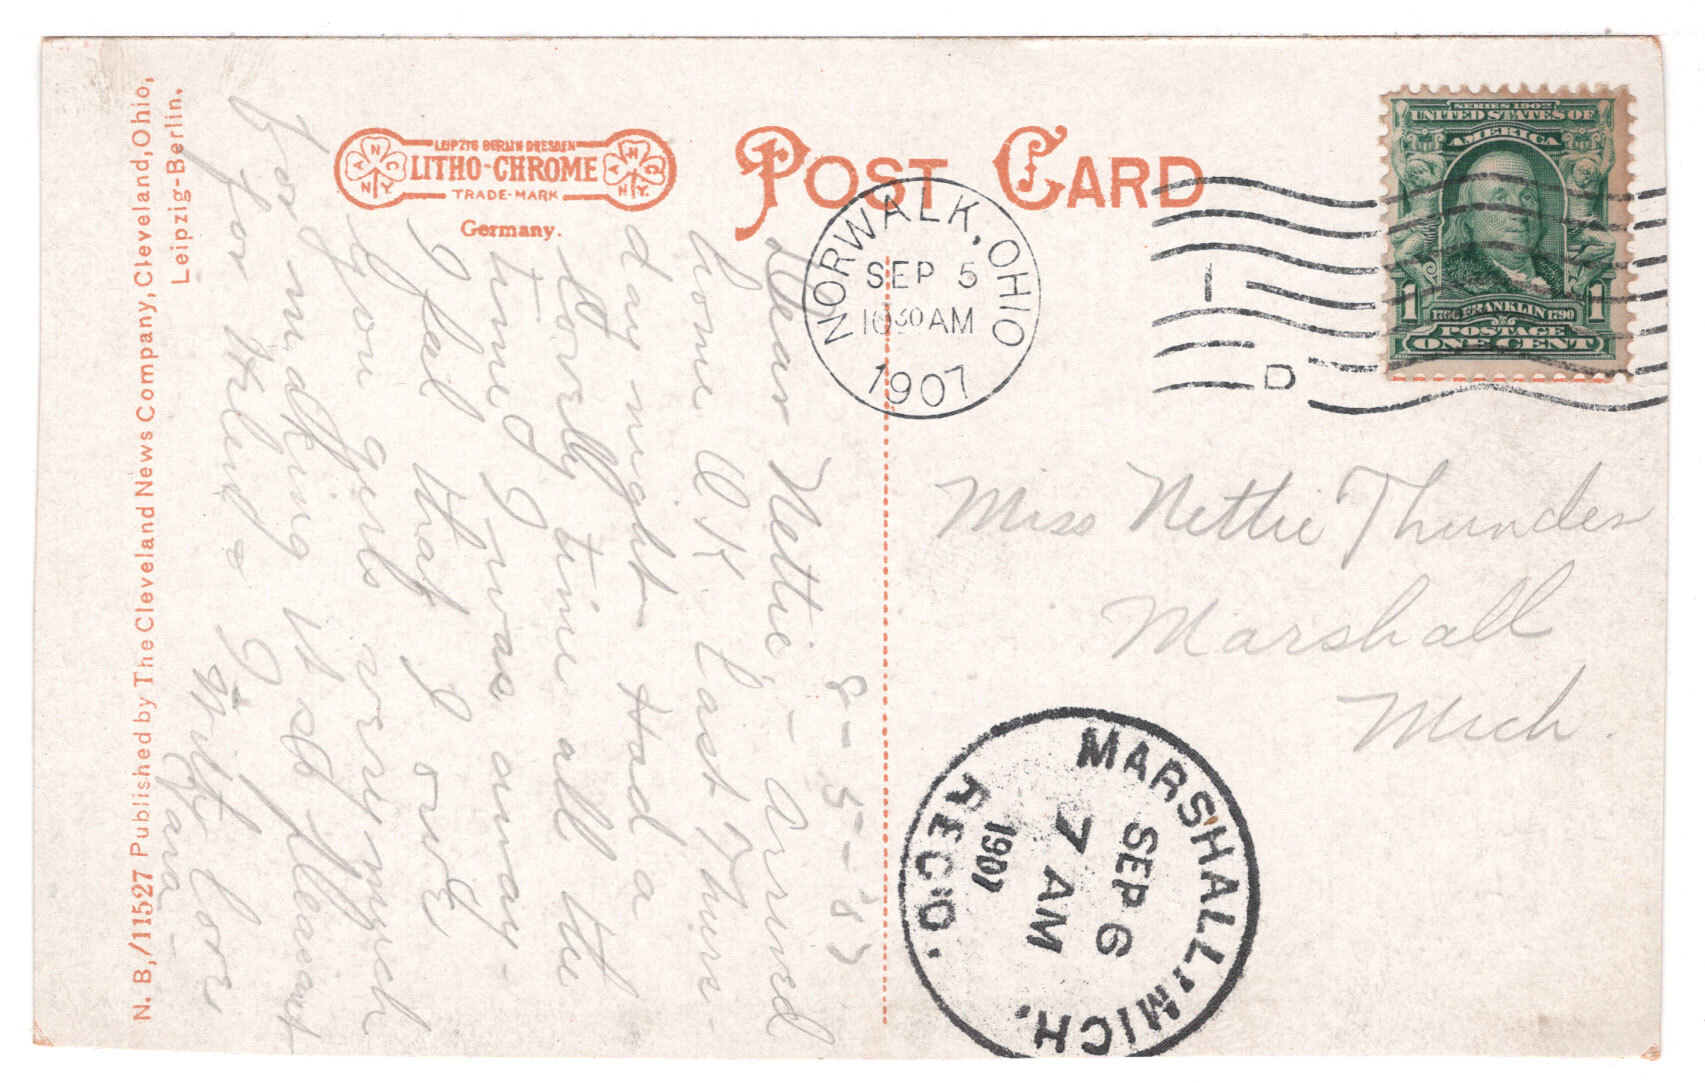 N. B,/11527 Published by The Cleveland News Company, Cleveland, Ohio,
Leipzig-Berlin.
LEIPZIG BERLIN DRESDEN
LITHO-CHROME
TRADE-MARK
Germany.
POST CARD
NORWALK, OHIO
SEP 5
10 30 AM
1907
SERIES 1902
UNITED STATES OF
AMERICA
1706 FRANKLIN 1790
POSTAGE
ONE CENT
1 1
I
D
Miss Nettie Thunder
Marshall
Mich.
MARSHALL, MICH.
SEP 6
7 AM
1907
REC'D.
8-5-'07
Dear Nettie - Arrived
home O.K. last Thurs-
day night. Had a
lovely time all the
time I was away -
I feel that I owe
you girls very much
for making it so pleasant
for Helen & I.
With love